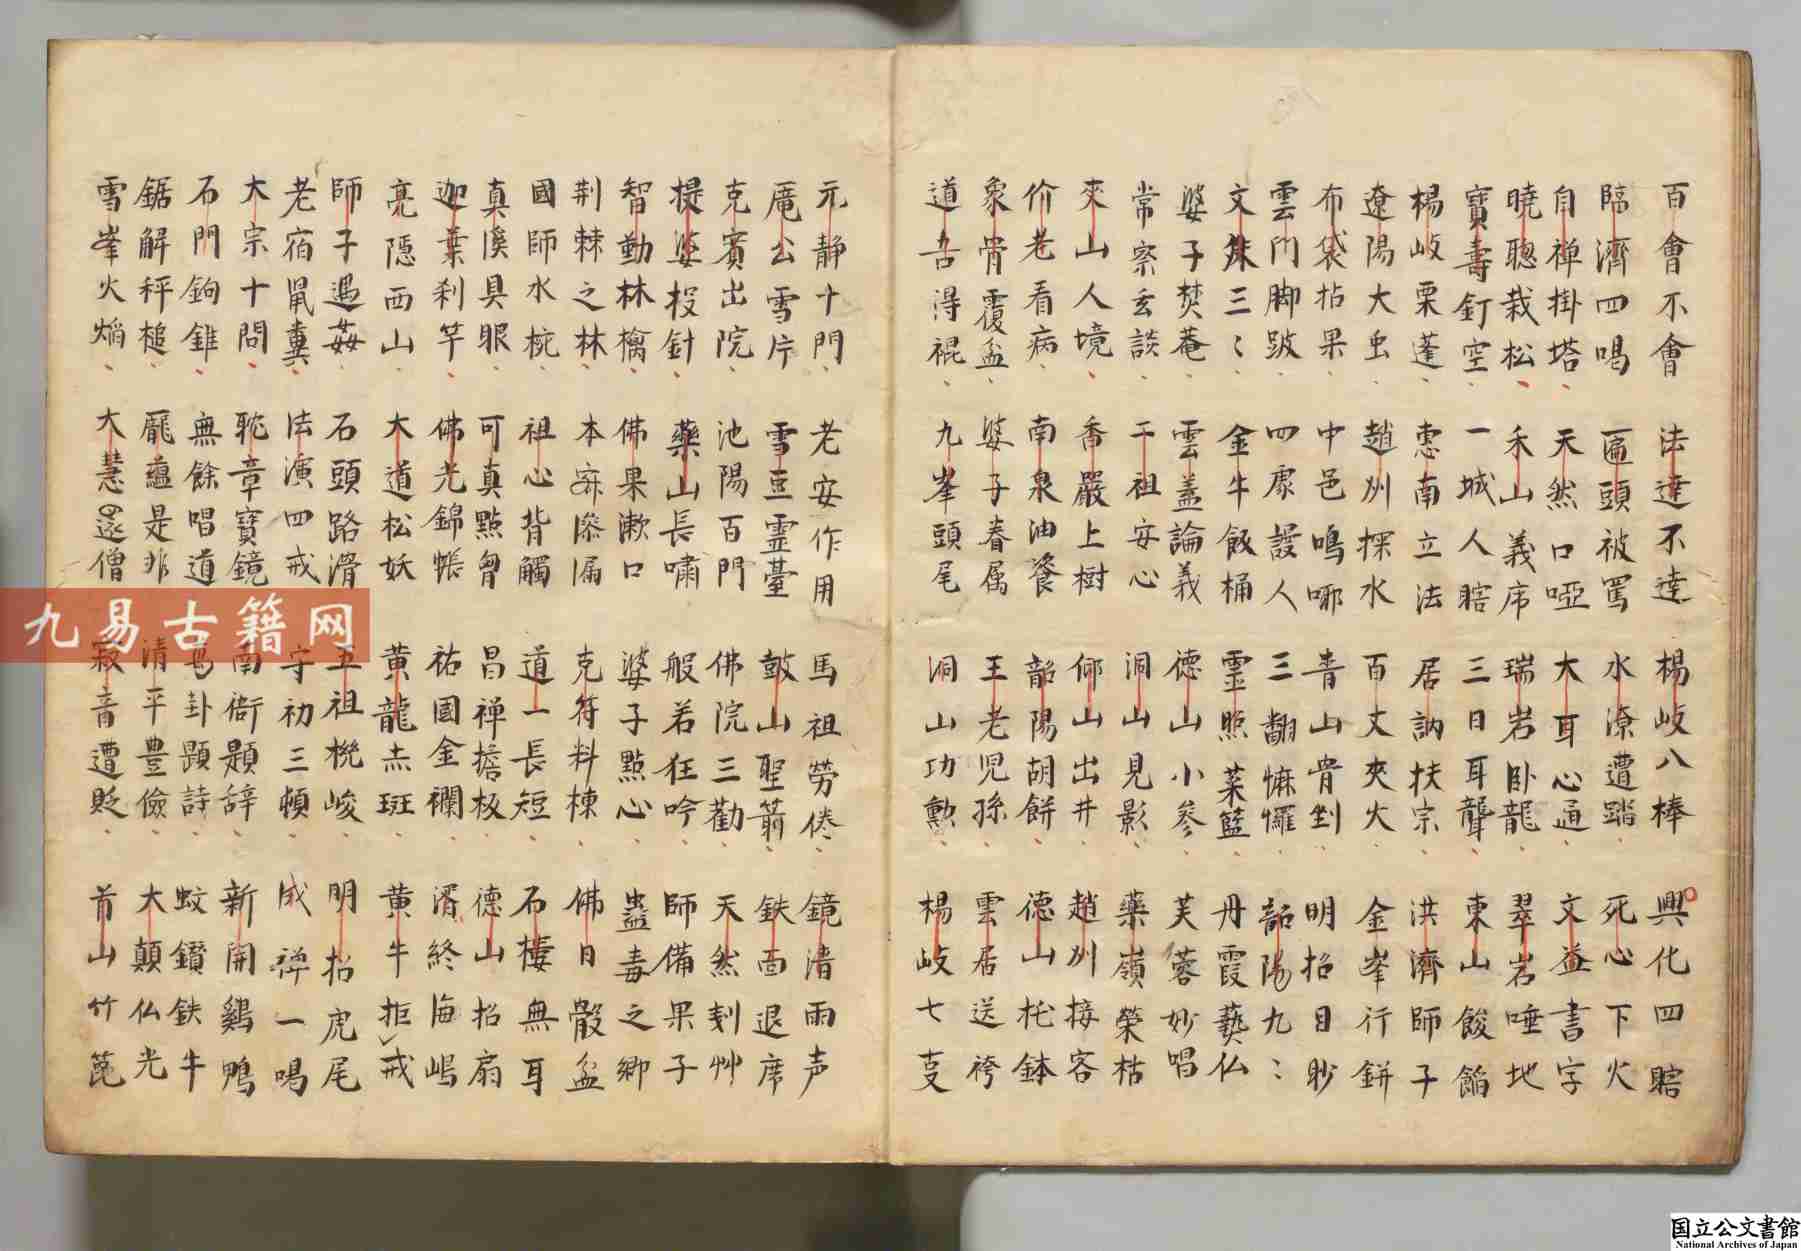 百會不會 法達不達 楊岐八棒 興化四瞎
臨濟四喝 匾頭被罵 水潦遭踏 死心下火
自禅掛塔 天然口啞 大耳心通 文益書字
曉聰栽松 禾山義席 瑞岩卧龍 翠岩唾地
寶壽釘空 一城人瞎 三日耳聾 東山餕餡
楊岐栗蓬 惠南立法 居訥扶宗 洪濟師子
遼陽大虫 趙州探水 百丈夾火 金峯行餅
布袋拈果 中邑鳴㖿 青山骨剉 明招目眇
雲門脚跛 四禀謾人 三翻懡㦬 韶陽九〻
文殊三〻 金牛飯桶 靈照菜籃 丹霞藝仏
婆子焚菴 雲盖論義 德山小參 芙蓉妙唱
常察玄談 二祖安心 洞山見影 藥嶺榮枯
夾山人境 香嚴上樹 仰山出井 趙州接客
价老看病 南泉油糍 韶陽胡餅 德山托鉢
象骨覆盆 婆子眷属 王老児孫 雲居送袴
道吾得裩 九峯頭尾 洞山功勲 楊岐七㕝
元静十門 老安作用 馬祖勞倦 鏡清雨声
庵公雪片 雪豆靈臺 皷山聖箭 鉄面退席
克賓出院 池陽百門 佛院三勸 天然剗艸
提婆投針 藥山長嘯 般若狂吟 師備果子
智勤林檎 佛果漱口 婆子點心 蠱毒之郷
荆棘之林 本寂滲漏 克符料棟 佛日骰盆
國師水椀 祖心背觸 道一長短 石樓無耳
真溪具眼 可真點胷 昌禅擔板 德山招扇
迦葉刹竿 佛光錦帳 祐國金襴 湑終海嶋
亮隱西山 大道松妖 黄龍赤斑 黄牛拒戒
師子遇姦 石頭路滑 五祖机峻 明招虎尾
老宿鼠糞 法演四戒 守初三頓 成禅一喝
大宗十問 耽章寶鏡 南衙題辞 新開鷄鴨
石門鉤錐 無餘唱道 卦題詩 蚊鑽鉄牛
鋸解秤槌 龐蘊是非 清平豊儉 大顛仏光
雪峯火焔 大慧還僧 寂音遭貶 首山竹篦
九易古籍网
国立公文書館
National Archives of Japan